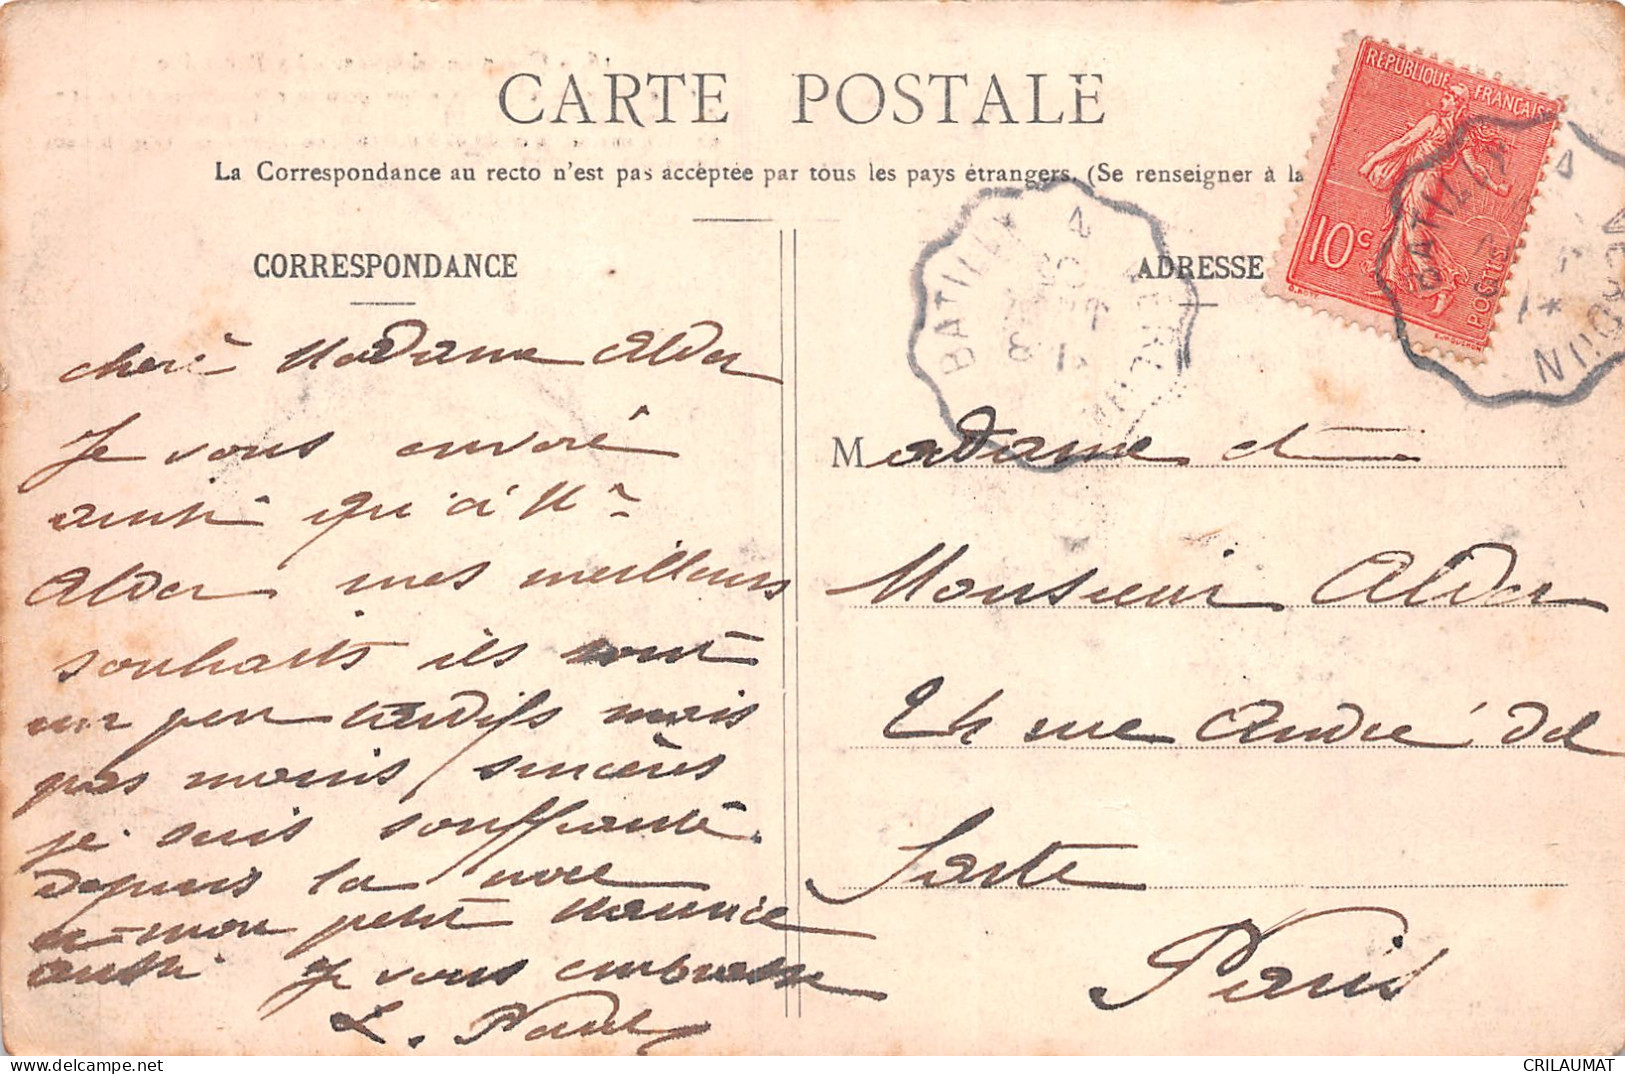 CARTE POSTALE
La Correspondance au recto n'est pas acceptée par tous les pays étrangers. (Se renseigner à la
CORRESPONDANCE
cheré Madame Alder
Je vous envoié
ainsi qu'à Mr
Alder mes meilleurs
souhaits ils sont
un peu tardifs mais
pas moins sincères
je suis souffrante
depuis la noel
mon petit Maurice
aussi Je vous embrasse
L. Paul
ADRESSE
Madame et
Monsieur Alder
24 rue André del
Sarte
Paris
REPUBLIQUE FRANÇAISE
10c
POSTES
BATILLY
BATILLY
VERDUN
CRILAUMAT